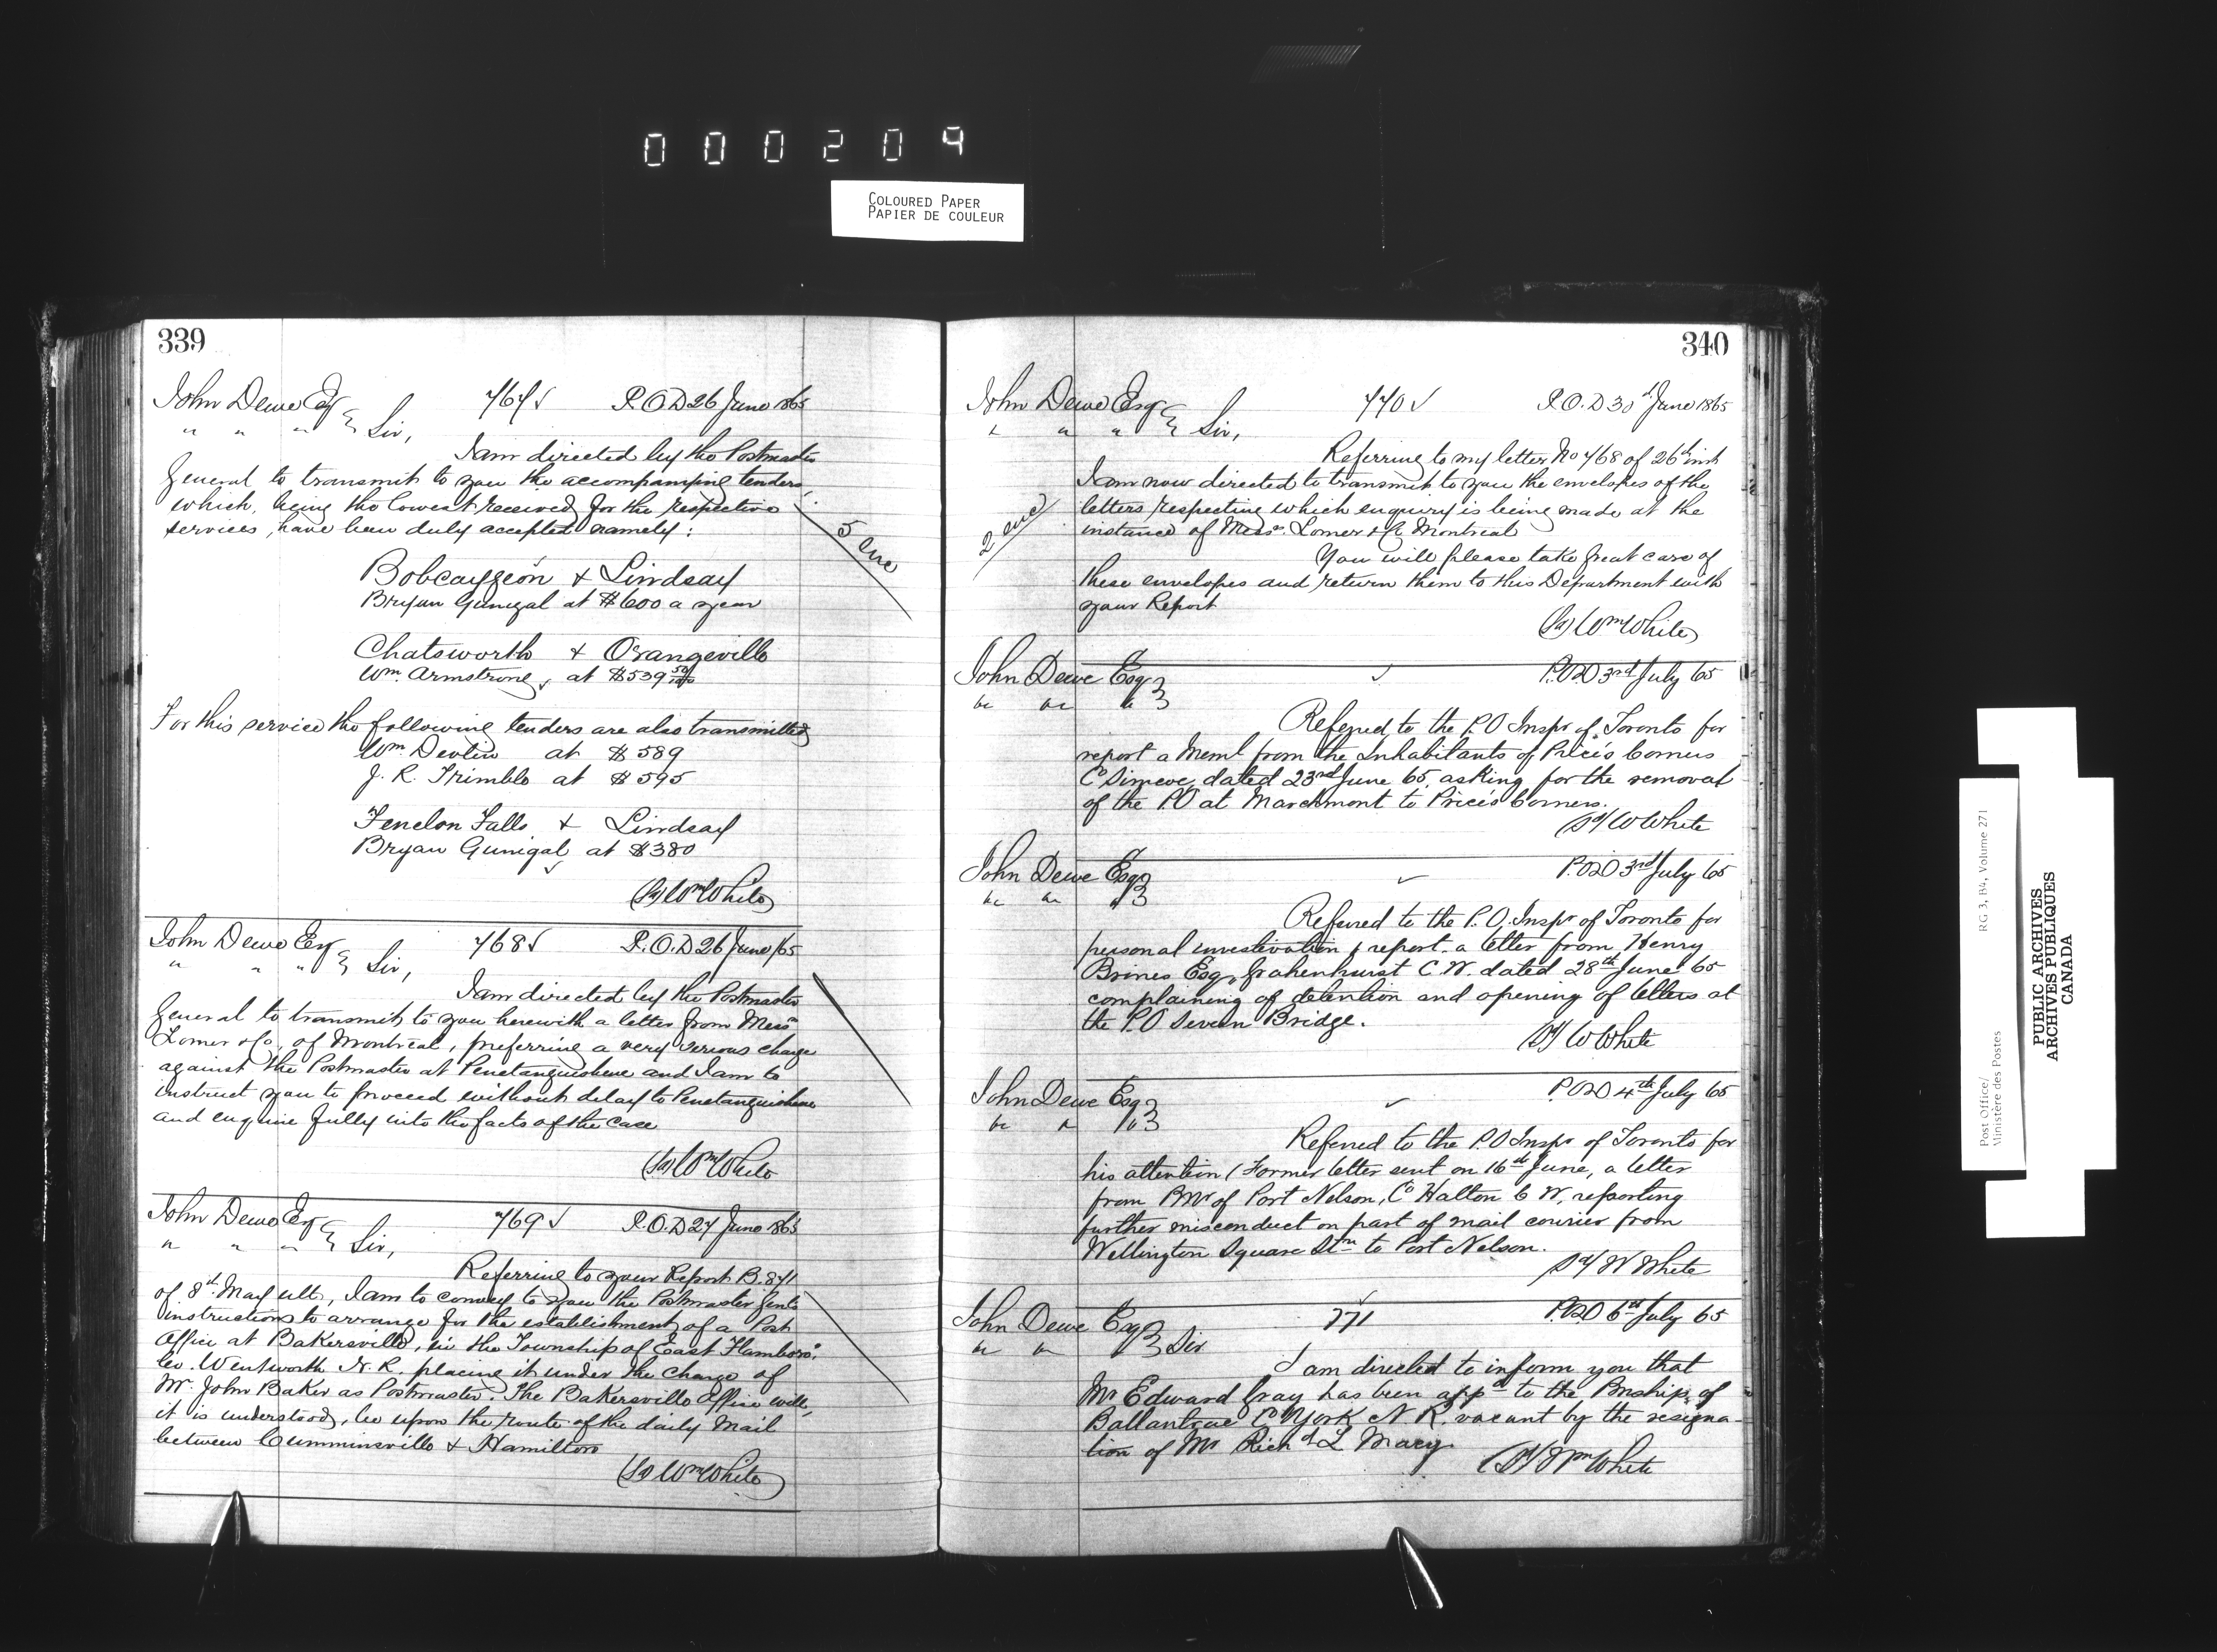 000209
COLOURED PAPER
PAPIER DE COULEUR
339
John Dewe Esq 767 √ P.O.D 26 June 1865
" " " Sir,
I am directed by the Postmaster
General to transmit to you the accompanying tenders,
which, being the lowest received for the respective
services, have been duly accepted namely:
5 enc
Bobcaygeon & Lindsay
Bryan Gunigal at $600 a year
Chatsworth & Orangeville
Wm. Armstrong, at $539 50/100
For this service the following tenders are also transmitted
Wm Devlin at $589
J. R. Trimble at $595
Fenelon Falls & Lindsay
Bryan Gunigal at $380
(Sd) Wm White
John Dewe Esq 768 √ P.O.D 26 June /65
" " " Sir,
I am directed by the Postmaster
General to transmit to you herewith a letter from Messrs
Lomer & Co, of Montreal, preferring a very serious charge
against the Postmaster at Penetanguishene and I am to
instruct you to proceed without delay to Penetanguishene
and enquire fully into the facts of the case
(Sd) Wm White
John Dewe Esq 769 √ P.O.D 27 June 1865
" " " Sir,
Referring to your Report B. 871
of 8th May ulto, I am to convey to you the Postmaster Genls
instructions to arrange for the establishment of a Post
Office at Bakersville, in the Township of East Flamboro'
Co. Wentworth N. R. placing it under the charge of
Mr. John Baker as Postmaster. The Bakersville Office will,
it is understood, be upon the route of the daily Mail
between Cumminsville & Hamilton
(Sd) Wm White
340
John Dewe Esq 770 √ P.O.D 30th June 1865
" " " Sir,
Referring to my letter No 768 of 26th inst
I am now directed to transmit to you the envelopes of the
letters respecting which enquiry is being made at the
instance of Messrs. Lomer & Co Montreal
2 enc
You will please take great care of
these envelopes and return them to this Department with
your Report
(Sd) Wm White
John Dewe Esq √ P.O.D 3rd July 65
" " "
Referred to the P.O Inspr of Toronto for
report a Meml from the Inhabitants of Price's Corners
Co Simcoe, dated 23rd June 65, asking for the removal
of the P.O at Marchmont to Price's Corners.
Sd/ W White
John Dewe Esq √ P.O.D 3rd July 65
" " "
Referred to the P.O. Inspr of Toronto for
personal investivation & report. a letter from Henry
Brines Esq, Grahenhurst C.W. dated 28th June 65
complaining of detention and opening of letters at
the P.O Severn Bridge.
Sd/ W White
John Dewe Esq √ P.O.D 4th July 65
" " "
Referred to the P.O Inspr of Toronto for
his attention (Former letter sent on 16th June, a letter
from PMr of Port Nelson, Co Halton C W, reporting
further misconduct on part of mail courier from
Wellington Square Stn to Port Nelson.
Sd/ W White
John Dewe Esq 771 √ P.O.D 6th July 65
" " " Sir
I am directed to inform you that
Mr Edward Gray has been appd to the Pmship of
Ballantrae Co York N. R. vacant by the resigna-
tion of Mr Richd L Macy
(Sd/ Wm White
Post Office/ RG 3, B4, Volume 271
Ministère des Postes
PUBLIC ARCHIVES
ARCHIVES PUBLIQUES
CANADA